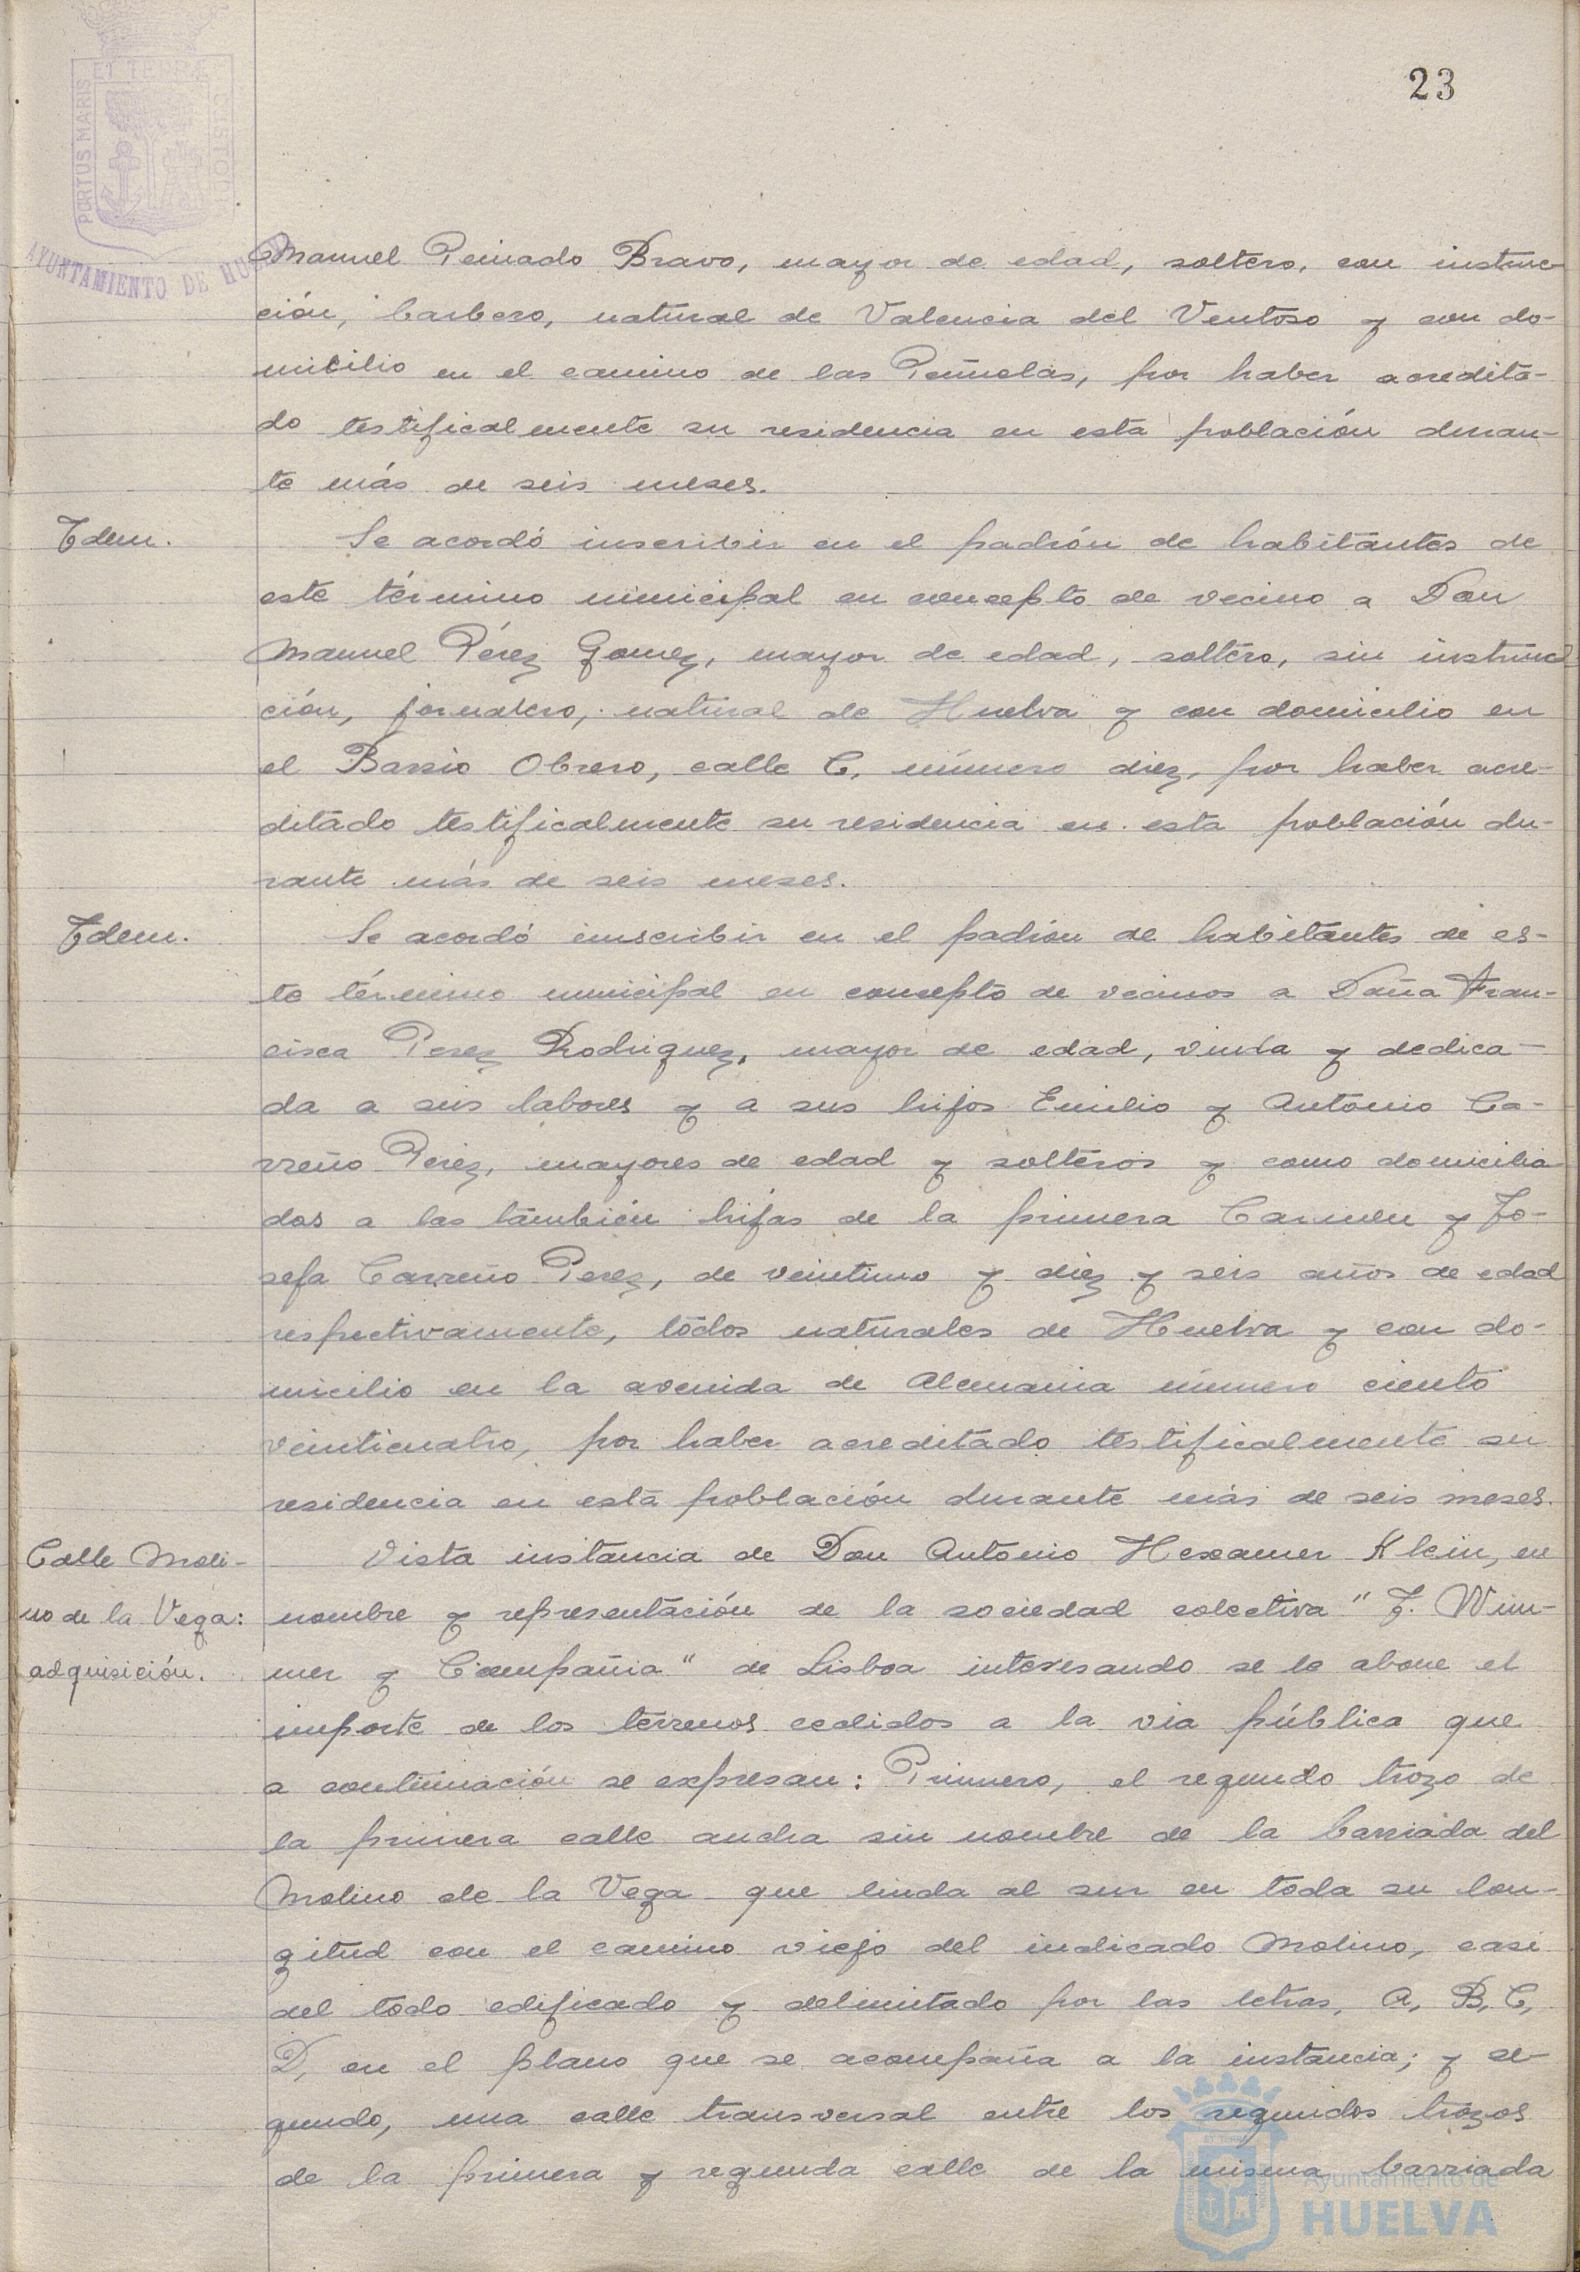 23
PORTUS MARIS ET TERRÆ CUSTODIA
AYUNTAMIENTO DE HUELVA
Manuel Peinado Bravo, mayor de edad, soltero, con instruc-
ción, barbero, natural de Valencia del Ventoso y con do-
micilio en el camino de las Peñuelas, por haber acredita-
do testificalmente su residencia en esta población duran-
te más de seis meses.
Idem.
Se acordó inscribir en el padrón de habitantes de
este término municipal en concepto de vecino a Don
Manuel Pérez Gomez, mayor de edad, soltero, sin instruc-
ción, jornalero, natural de Huelva y con domicilio en
el Barrio Obrero, calle C, número diez, por haber acre-
ditado testificalmente su residencia en esta población du-
rante más de seis meses.
Idem.
Se acordó inscribir en el padrón de habitantes de es-
te término municipal en concepto de vecinos a Doña Fran-
cisca Perez Rodriguez, mayor de edad, viuda y dedica-
da a sus labores y a sus hijos Emilio y Antonio Ca-
rreño Perez, mayores de edad y solteros y como domicilia-
dos a las también hijas de la primera Carmen y Jo-
sefa Carreño Perez, de veintiuno y diez y seis años de edad
respectivamente, todos naturales de Huelva y con do-
micilio en la avenida de Alemania número ciento
veinticuatro, por haber acreditado testificalmente su
residencia en esta población durante más de seis meses.
Calle Moli-
no de la Vega:
adquisición.
Vista instancia de Don Antonio Hexamer Klein, en
nombre y representación de la sociedad colectiva "J. Wim-
mer y Compañia" de Lisboa interesando se le abone el
importe de los terrenos cedidos a la via pública que
a continuación se expresan: Primero, el segundo trozo de
la primera calle ancha sin nombre de la barriada del
Molino de la Vega que linda al sur en toda su lon-
gitud con el camino viejo del indicado Molino, casi
del todo edificado y delimitado por las letras, A, B, C,
D, en el plano que se acompaña a la instancia; y se-
gundo, una calle transversal entre los segundos trozos
de la primera y segunda calle de la misma barriada
Ayuntamiento de
HUELVA